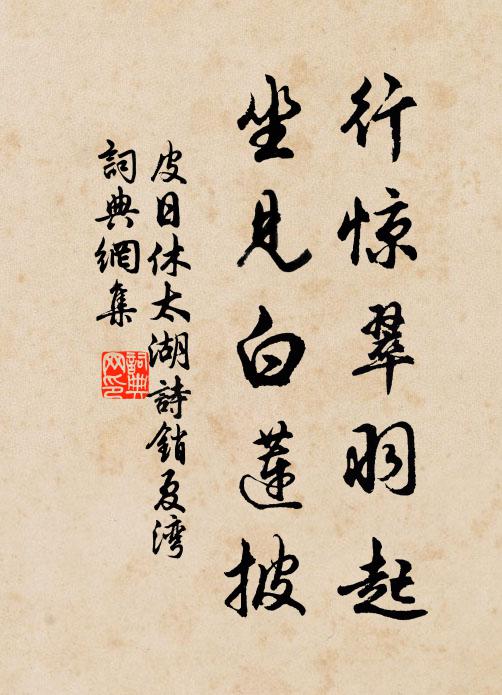 行惊翠羽起
坐见白蓮披
皮日休太湖詩銷夏湾
詞典網集
詞典
网印